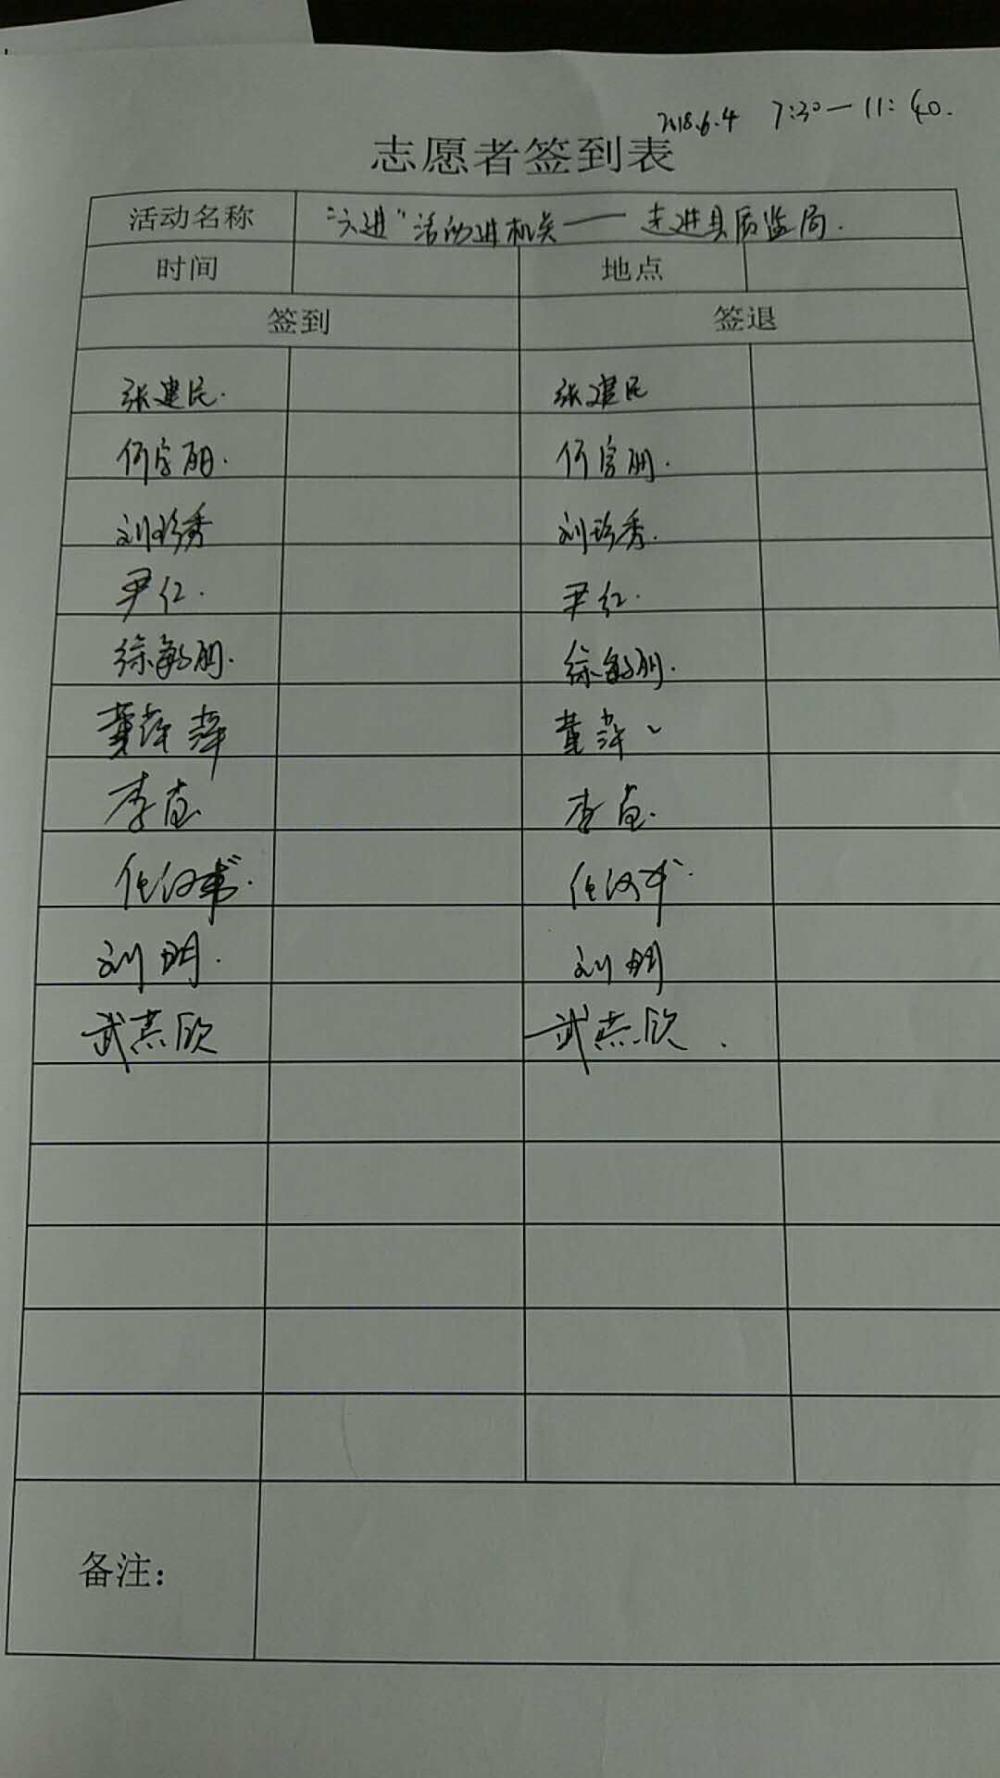 2018.6.4 7:30—11:40.
志愿者签到表
活动名称 "六进"活动进机关——走进县质监局.
时间 地点
签到 签退
张建民. 张建民
何字丽. 何字丽.
刘珍秀 刘珍秀.
尹红. 尹红.
徐敏丽. 徐敏丽.
董萍萍 董萍、
李苗 李苗.
任汉书. 任汉书.
刘明. 刘明
武杰欣 武杰欣.
备注：